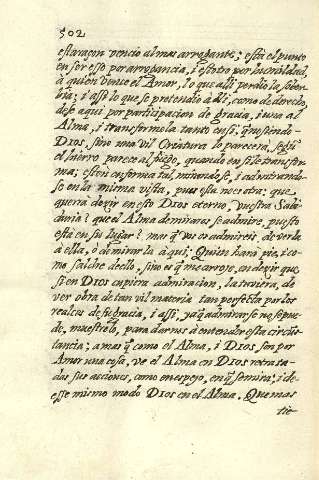 502
esta raçon vencio al mas arrogante; esta el punto
en ser esso por arrogancia, i estotro por humildad,
à quien vence el Amor, lo que alli perdio la sober-
bia; i assi lo que se pretendio allì, como de derecho,
dese aqui por participacion de gracia, i vea al
Alma, i transformela tanto en si, q̃ no siendo
DIOS, sino una vil Criatura lo parecerà, segũ
el hierro parece al fuego, quando en si le transfor-
ma; està en su forma tal, mirandose, i admirando-
se en la misma vista, pues esta nos otra: que
querrà dezir en esto DIOS eterno, vuestra Sabi-
duria? que el Alma de miraros se admire, puesto
està en su lugar? mas q̃ vos os admireis, de verla
à ella, ò de mirarla à qui: Quien harà pie, i co-
mo saldrè dello, sino es q̃ me arroje, en dezir que
si en DIOS cupiera admiracion, la tuviera, de
ver obra de tan vil materia tan perfecta por los
realces de su gracia, i assi, ya q̃ admirarse no se pue-
do, muestrelo, para darnos à entender esta circũs-
tancia; a mas q̃ como el Alma, i DIOS son por
Amor una cosa, ve el Alma en DIOS retrata-
das sus acciones, como en espejo, en q̃ se mira; i de
esse mismo modo DIOS en el Alma. Que mas
tie